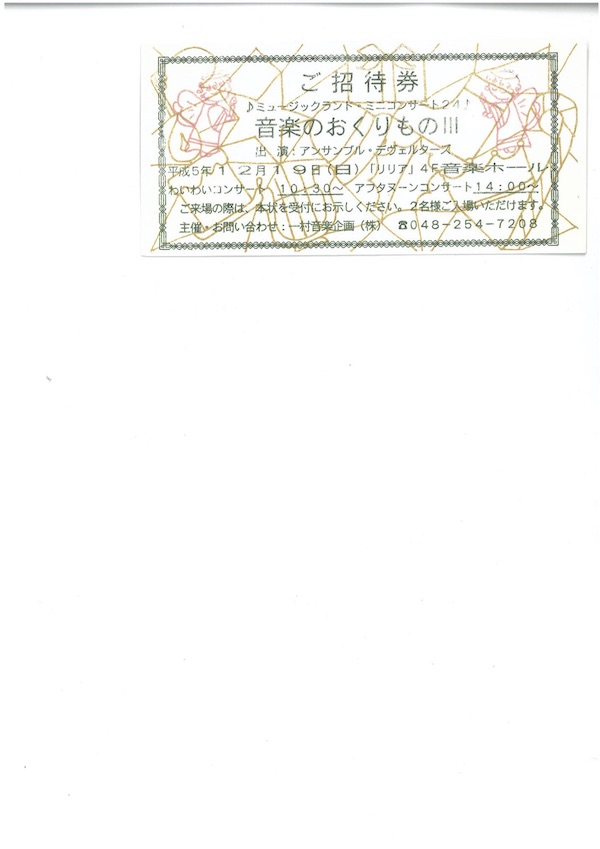 ご招待券
♪ミュージックランド・ミニコンサート24♪
音楽のおくりものIII
出 演：アンサンブル・デヴェルターズ
平成5年12月19日(日) 「リリア」4F音楽ホール
わいわいコンサート 10:30～ アフタヌーンコンサート14:00～
ご来場の際は、本状を受付にお示しください。2名様ご入場いただけます。
主催・お問い合わせ：一村音楽企画（株） ☎048-254-7208